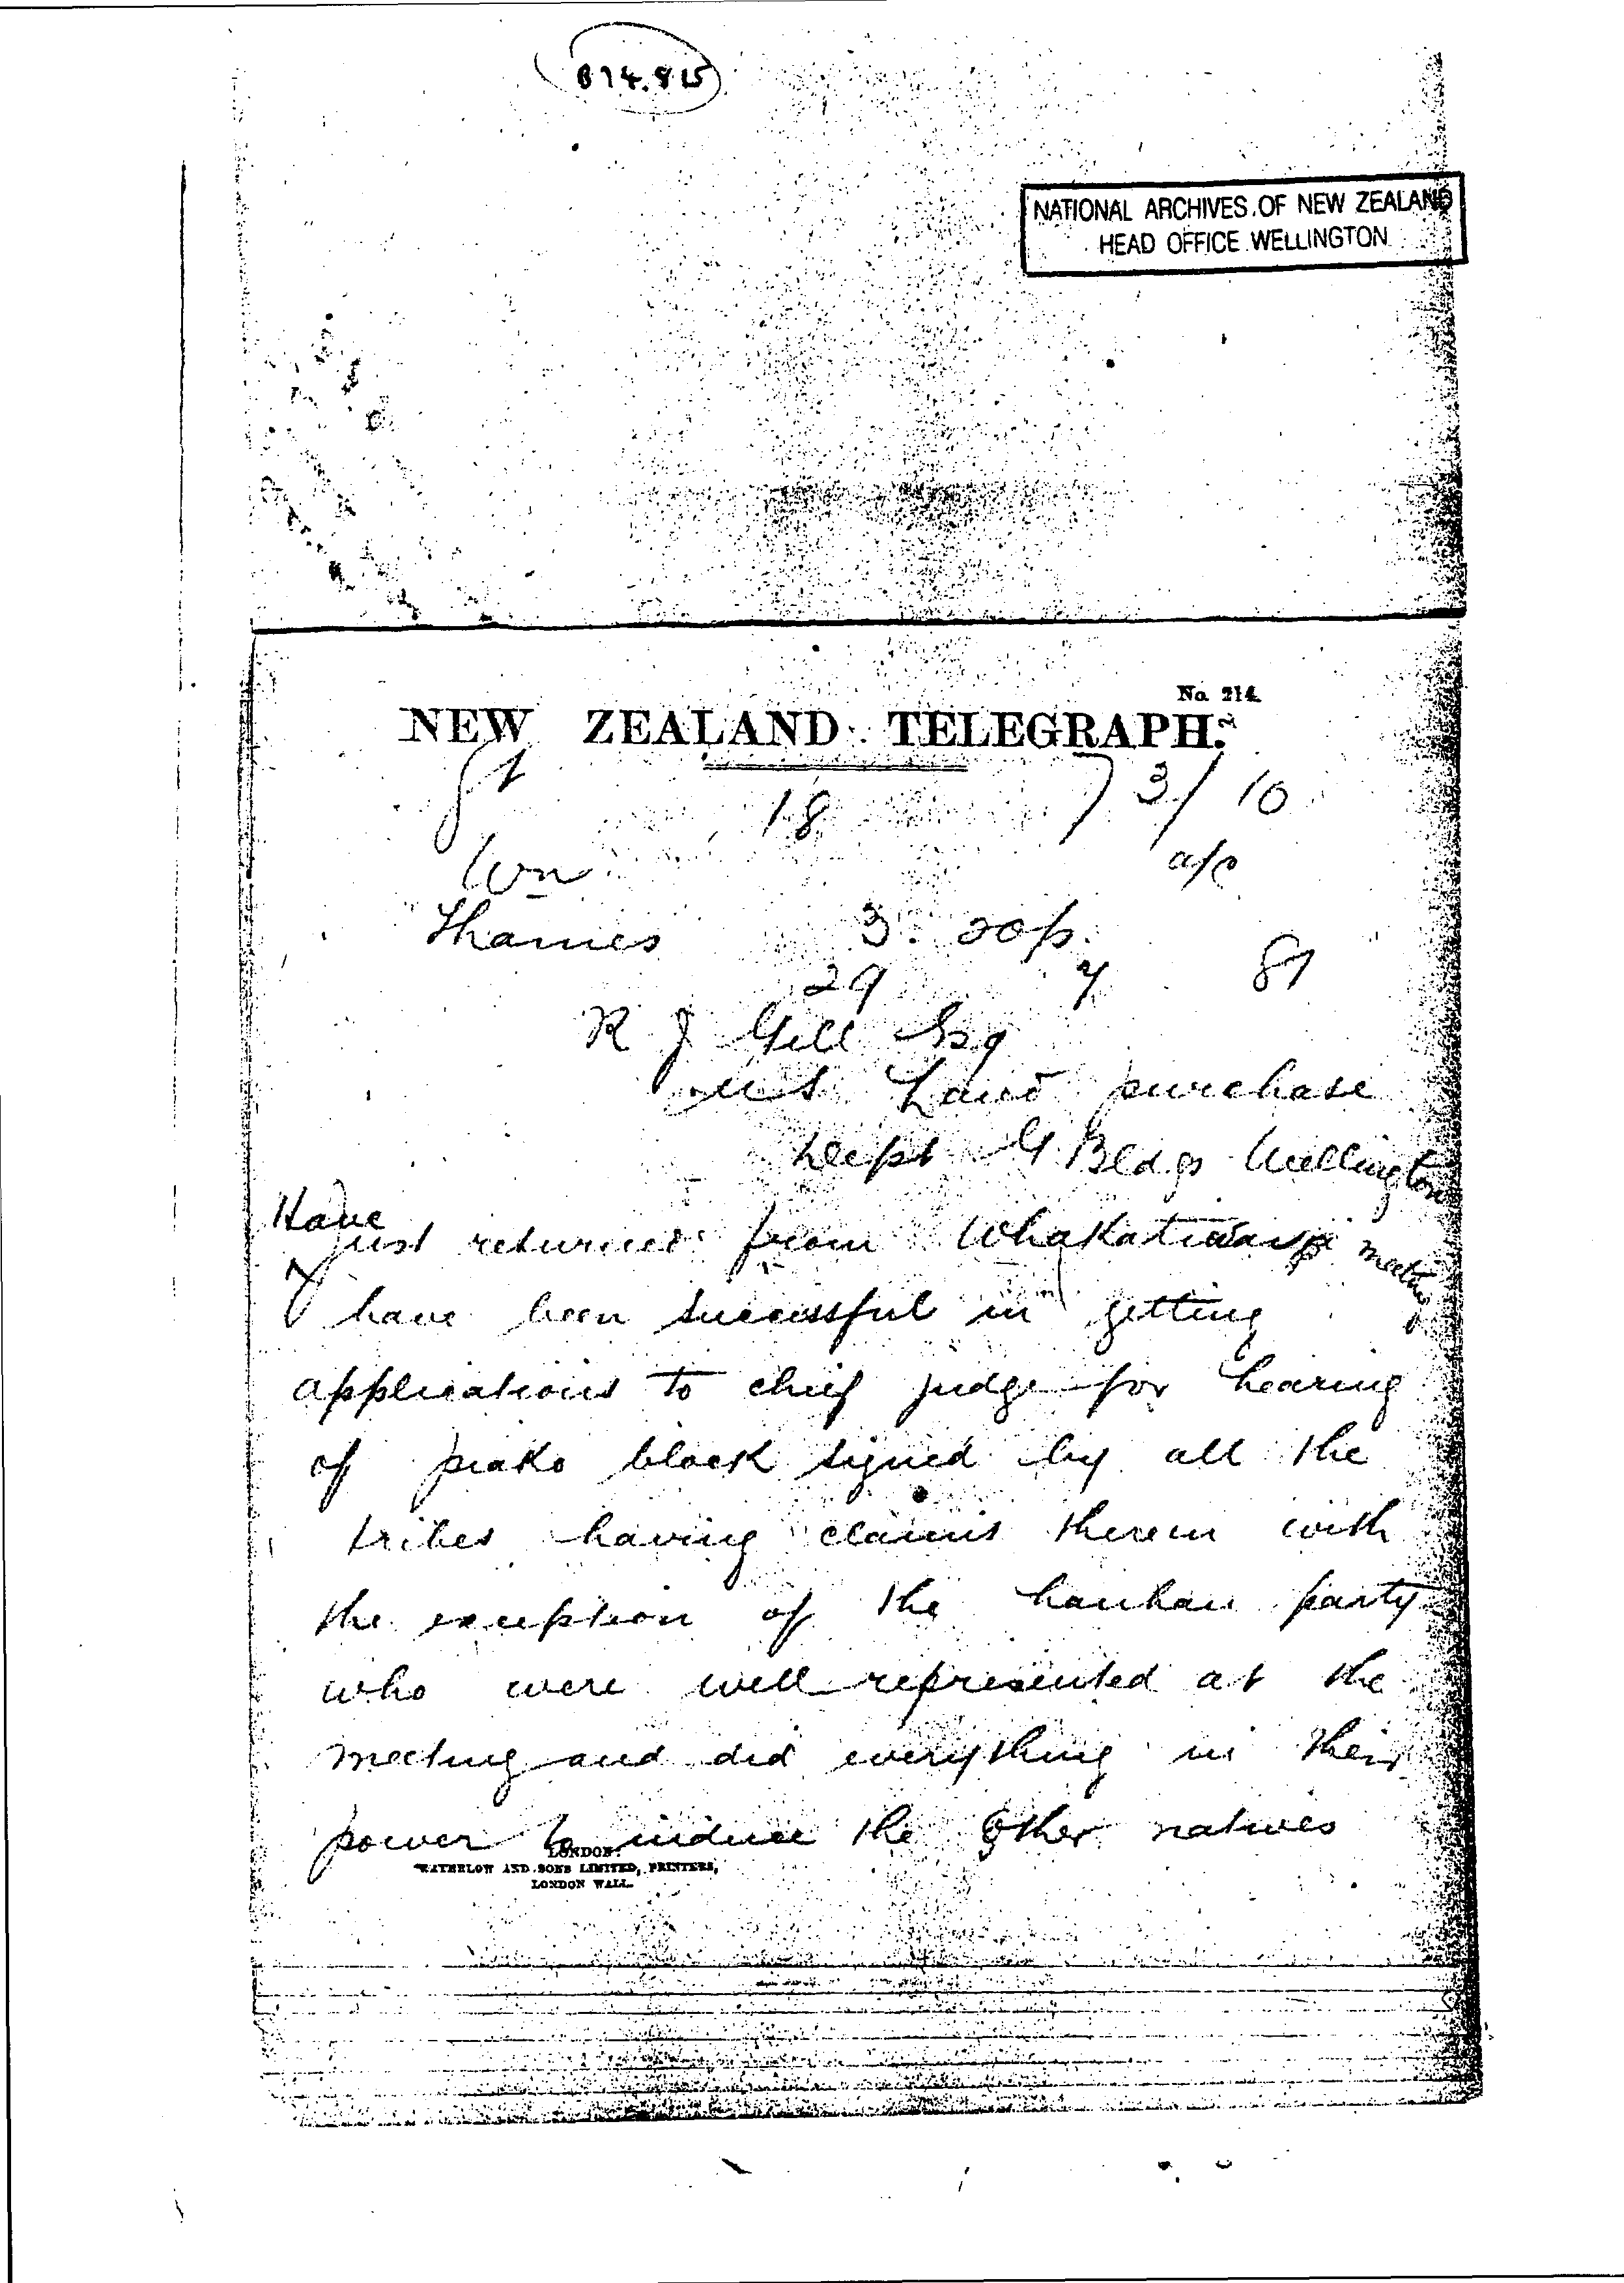 874.815
NATIONAL ARCHIVES OF NEW ZEALAND
HEAD OFFICE WELLINGTON
No. 214
NEW ZEALAND TELEGRAPH.
18 73/10
Wn a/c
Thames 3. 30p.
29 7 87
R J Gill Esq
Land purchase
Dept G Bldgs Wellington
Have
just returned from Whakatiwai meeting
have been successful in getting
applications to chief judge for hearing
of piako block signed by all the
tribes having claims therein with
the exception of the hauhau party
who were well represented at the
meeting and did everything in their
power to induce the other natives
LONDON:
WATERLOW AND SONS LIMITED, PRINTERS,
LONDON WALL.